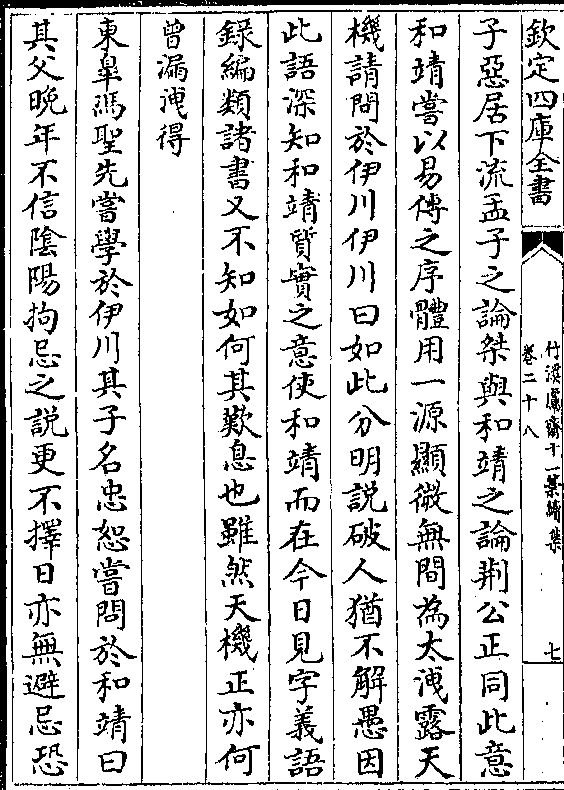 欽定四庫全書
竹溪鬳齋十一藁續集
卷二十八
七
子惡居下流孟子之論桀與和靖之論荆公正同此意
和靖嘗以易傳之序體用一源顯微無間為太洩露天
機請問於伊川伊川曰如此分明説破人猶不解愚因
此語深知和靖質實之意使和靖而在今日見字義語
録編類諸書又不知如何其歎息也雖然天機正亦何
曾漏洩得
東臯馮聖先嘗學於伊川其子名忠恕嘗問於和靖曰
其父晚年不信陰陽拘忌之説更不擇日亦無避忌恐